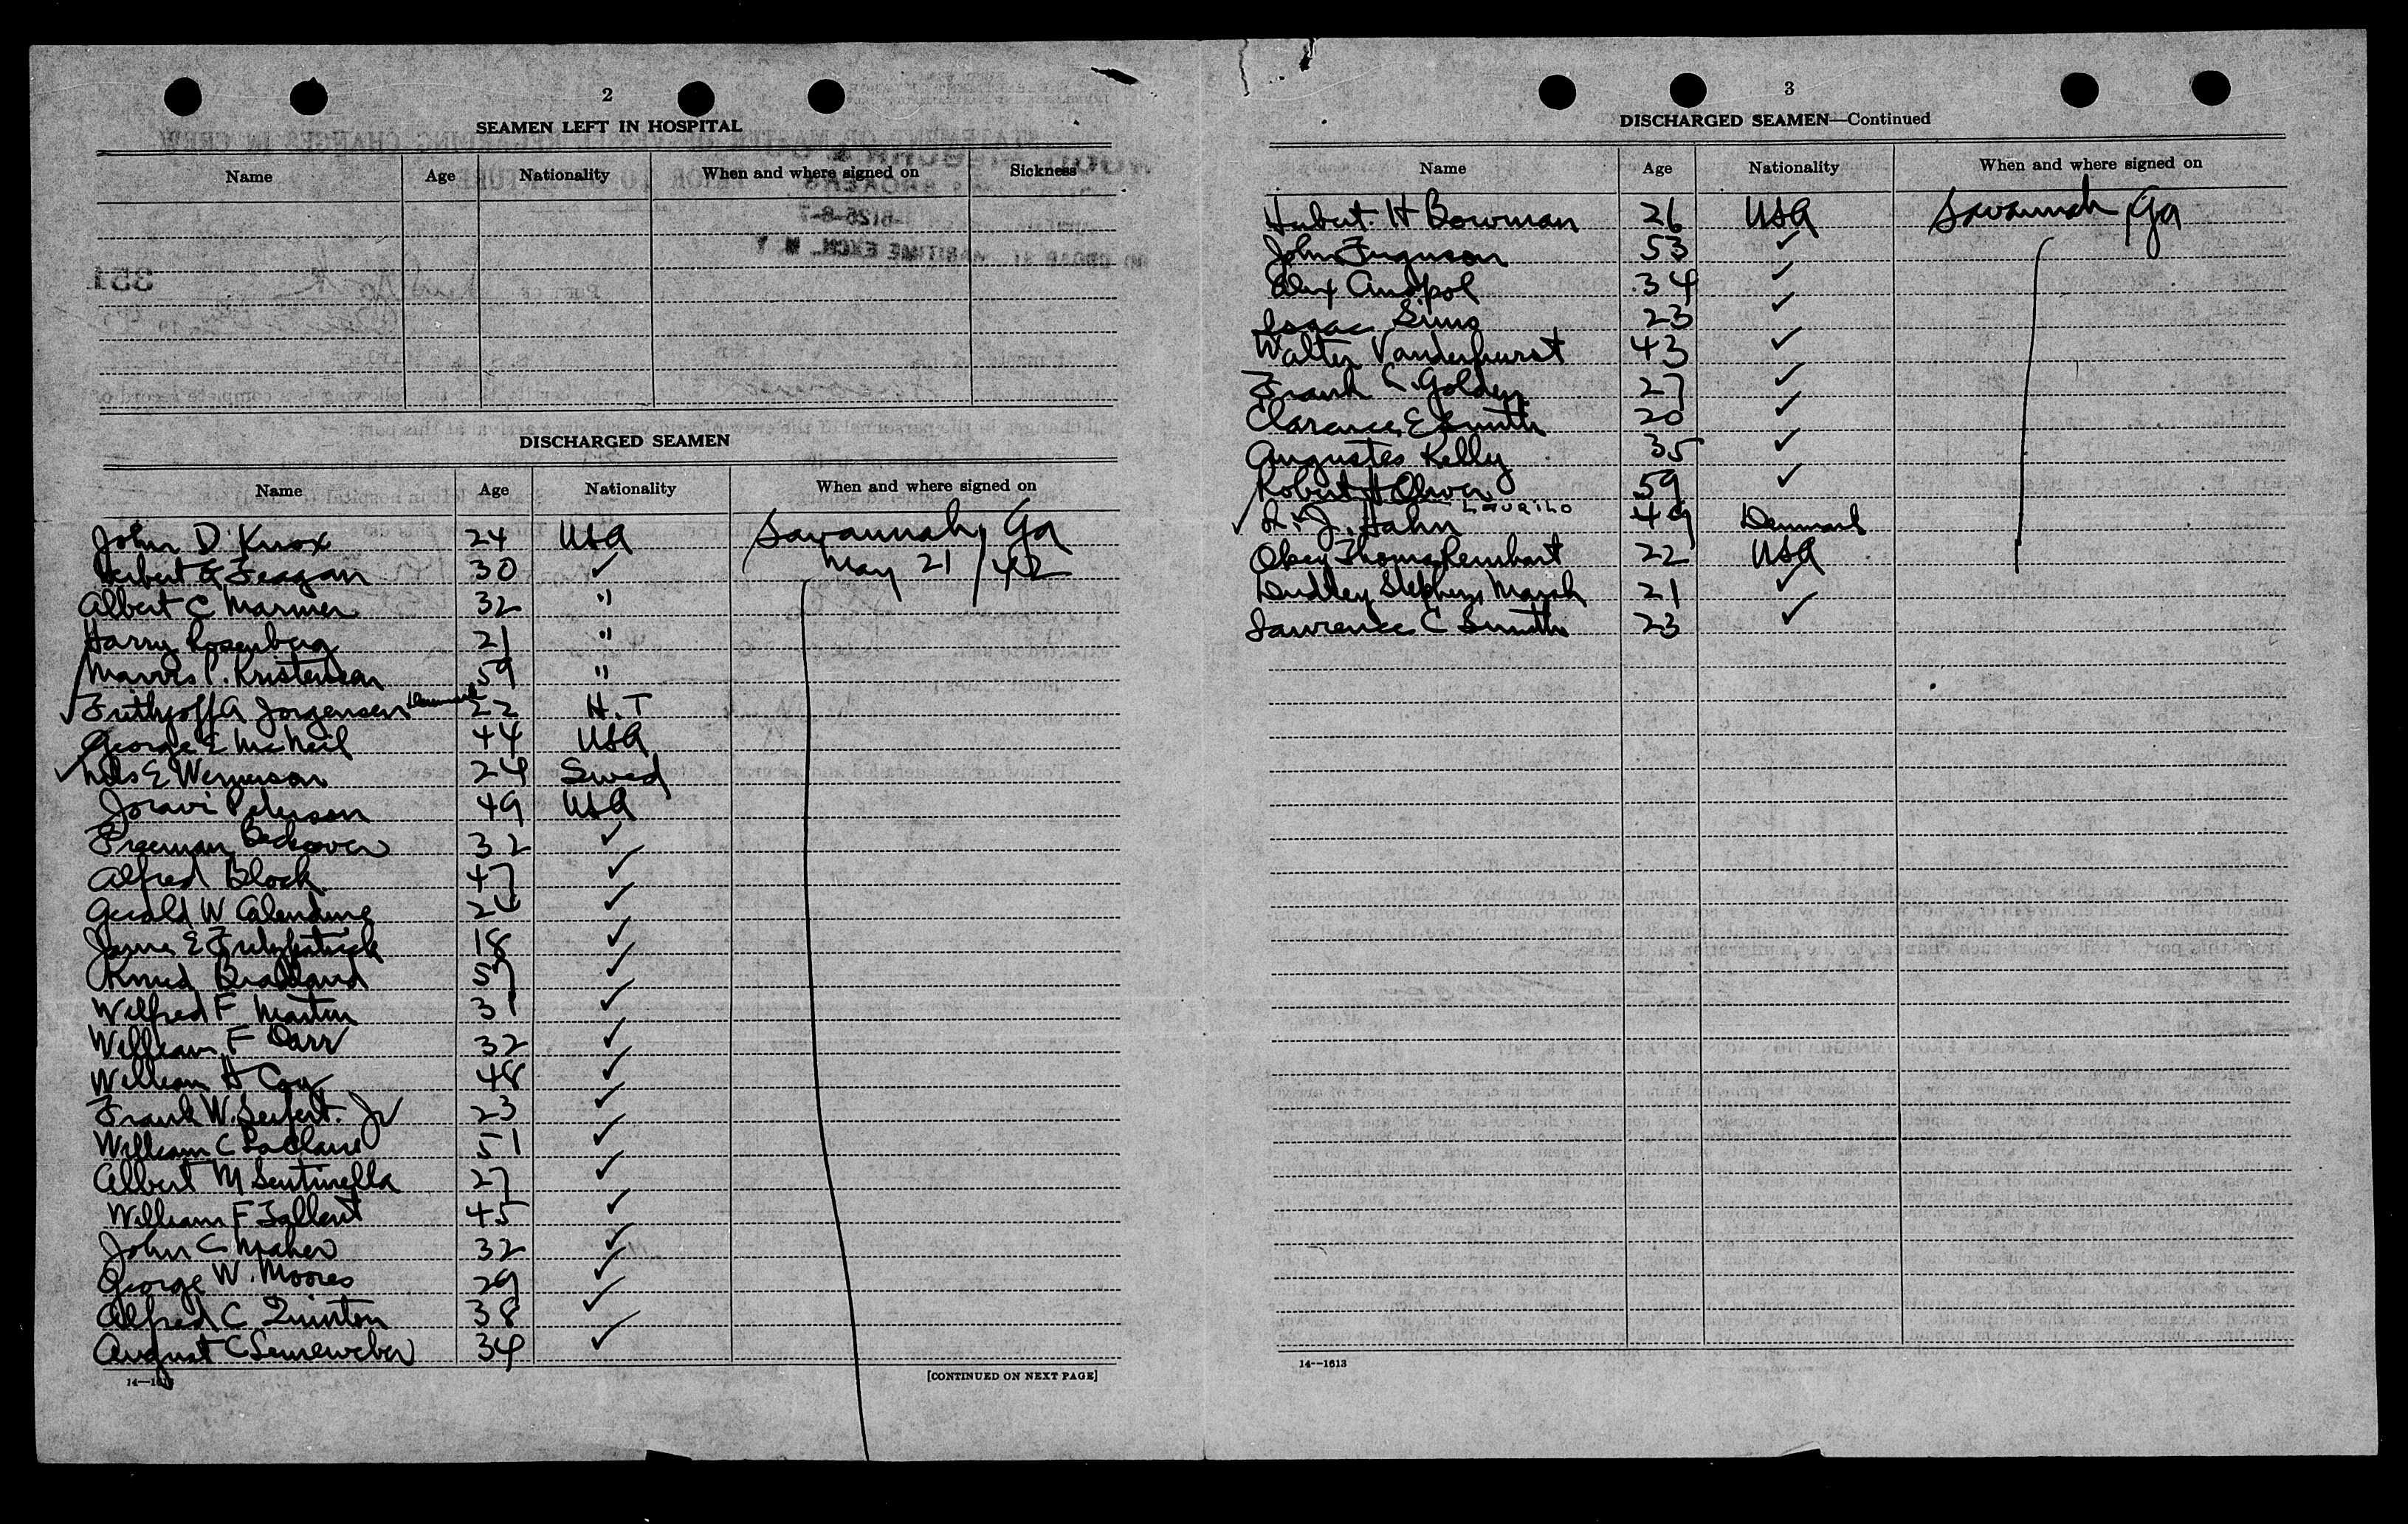 2
SEAMEN LEFT IN HOSPITAL
Name Age Nationality When and where signed on Sickness
DISCHARGED SEAMEN
Name Age Nationality When and where signed on
John D. Knox 24 USA Savannah, Ga
Herbert G Feagan 30 ✓ May 21/42
Albert C Marmer 32 "
Harry Rosenberg 21 "
Marvis P. Kristensen 59 "
✓ Frithjoff A Jorgensen Denmark 22 H.T
George E McNeil 44 USA
✓ Nils E Wernerson 24 Swed
Peterson 49 USA
Freeman 32 ✓
Alfred Block 47 ✓
Gerald W 24 ✓
James E Fitzpatrick 18 ✓
Knud 57 ✓
Wilfred F Martin 31 ✓
William F Darr 32 ✓
William H Coy 48 ✓
Frank W. Seifert. Jr 23 ✓
William C LaClaire 51 ✓
Albert M Sentinella 27 ✓
William F Tallent 45 ✓
John C Maher 32 ✓
George W. Moores 29 ✓
Alfred C Quinton 38 ✓
August C 34 ✓
14—1613
[CONTINUED ON NEXT PAGE]
3
DISCHARGED SEAMEN—Continued
Name Age Nationality When and where signed on
Hubert. H Bowman 26 USA Savannah, Ga
John Ferguson 53 ✓
Alex Anopol 34 ✓
Isaac Sims 23 ✓
Walter Vanderhurst 43 ✓
Frank C. Golden 27 ✓
Clarence E Smith 20 ✓
Augustes Kelly 35 ✓
Robert H Oliver 59 ✓
✓ J. Hahn 49 Denmark
Obey Thomas Renhart 22 USA
Dudley Stephens Marsh 21 ✓
Lawrence C Smith 23 ✓
14—1613